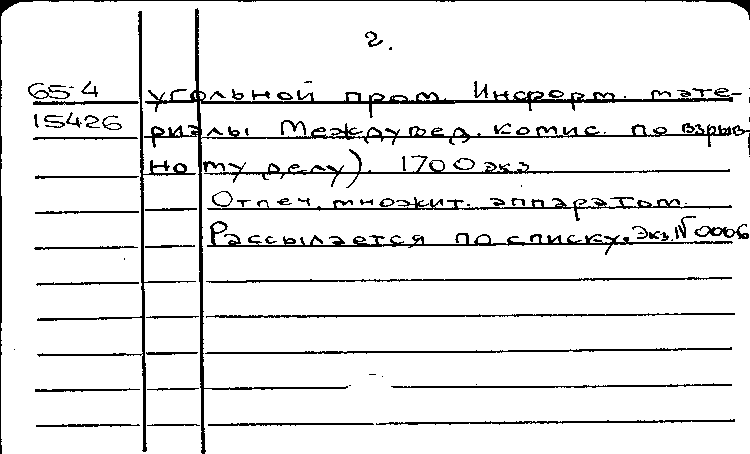 2.
65-4 угольной пром. Информ. мате-
15426 риалы Междувед. комис. по взрыв-
ному делу). 1700 экз
Отпеч. множит. аппаратом.
Рассылается по списку. Экз. № 0006